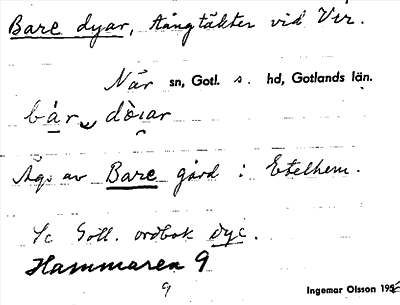 Bare dyar, Aängtäkter vid Ver.
När sn, Gotl. s. hd, Gotlands län.
bár dòıar
Ägs av Bare gård i Etelhem.
Sc Gotl. ordbok dyc.
Hammaren 9
9
Ingemar Olsson 195